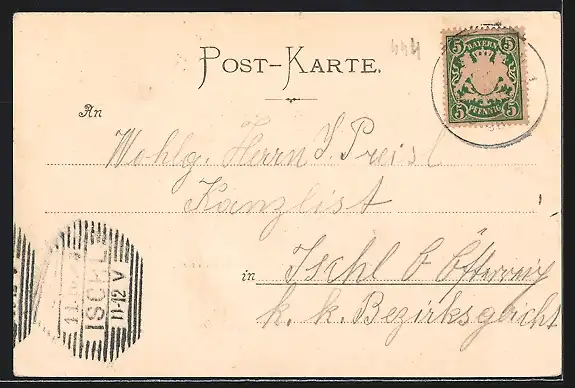 444
POST-KARTE.
5 BAYERN 5
5 PFENNIG 5
An
Wohlg. Herrn J. Preisl
Kanzlist
in Ischl O Österreich
k. k. Bezirksgericht
ISCHL
11-12 V